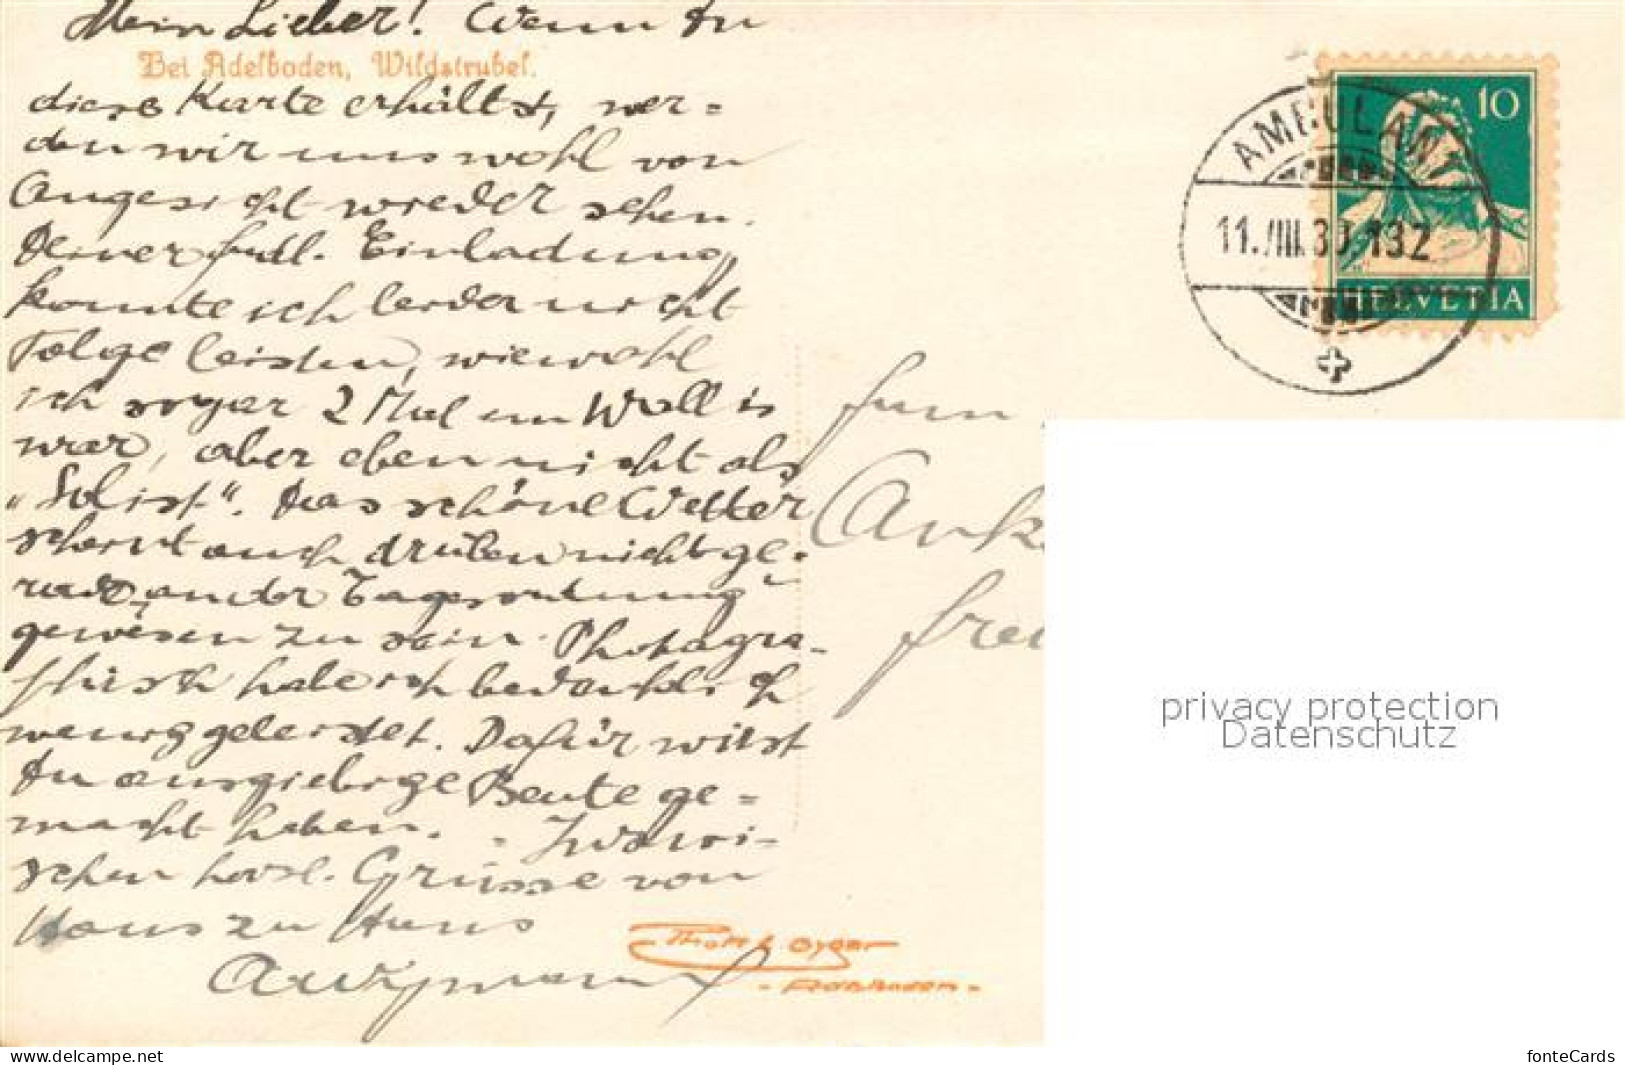 Mein Lieber! Wenn Du
Bei Adelboden, Wildstrubel.
diese Karte erhältst, wer=
den wir uns wohl von
Angesicht wieder sehen.
Deiner frdl. Einladung
konnte ich leider nicht
Folge leisten, wiewohl
ich sogar 2 Mal im Wallis
war, aber eben nicht als
"Solist". Das schöne Wetter
scheint auch drüben nicht ge-
rade an der Tagesordnung
gewesen zu sein. Photogra-
phisch habe ich bedenklich
wenig geleistet. Dafür wirst
Du ausgiebige Beute ge=
macht haben. - Inzwi-
schen herzl. Grüsse von
Haus zu Haus
Photo Gyger
- Adelboden -
AMBULANT
11. VIII. 30. 192
10
HELVETIA
privacy protection
Datenschutz
www.delcampe.net
fonteCards